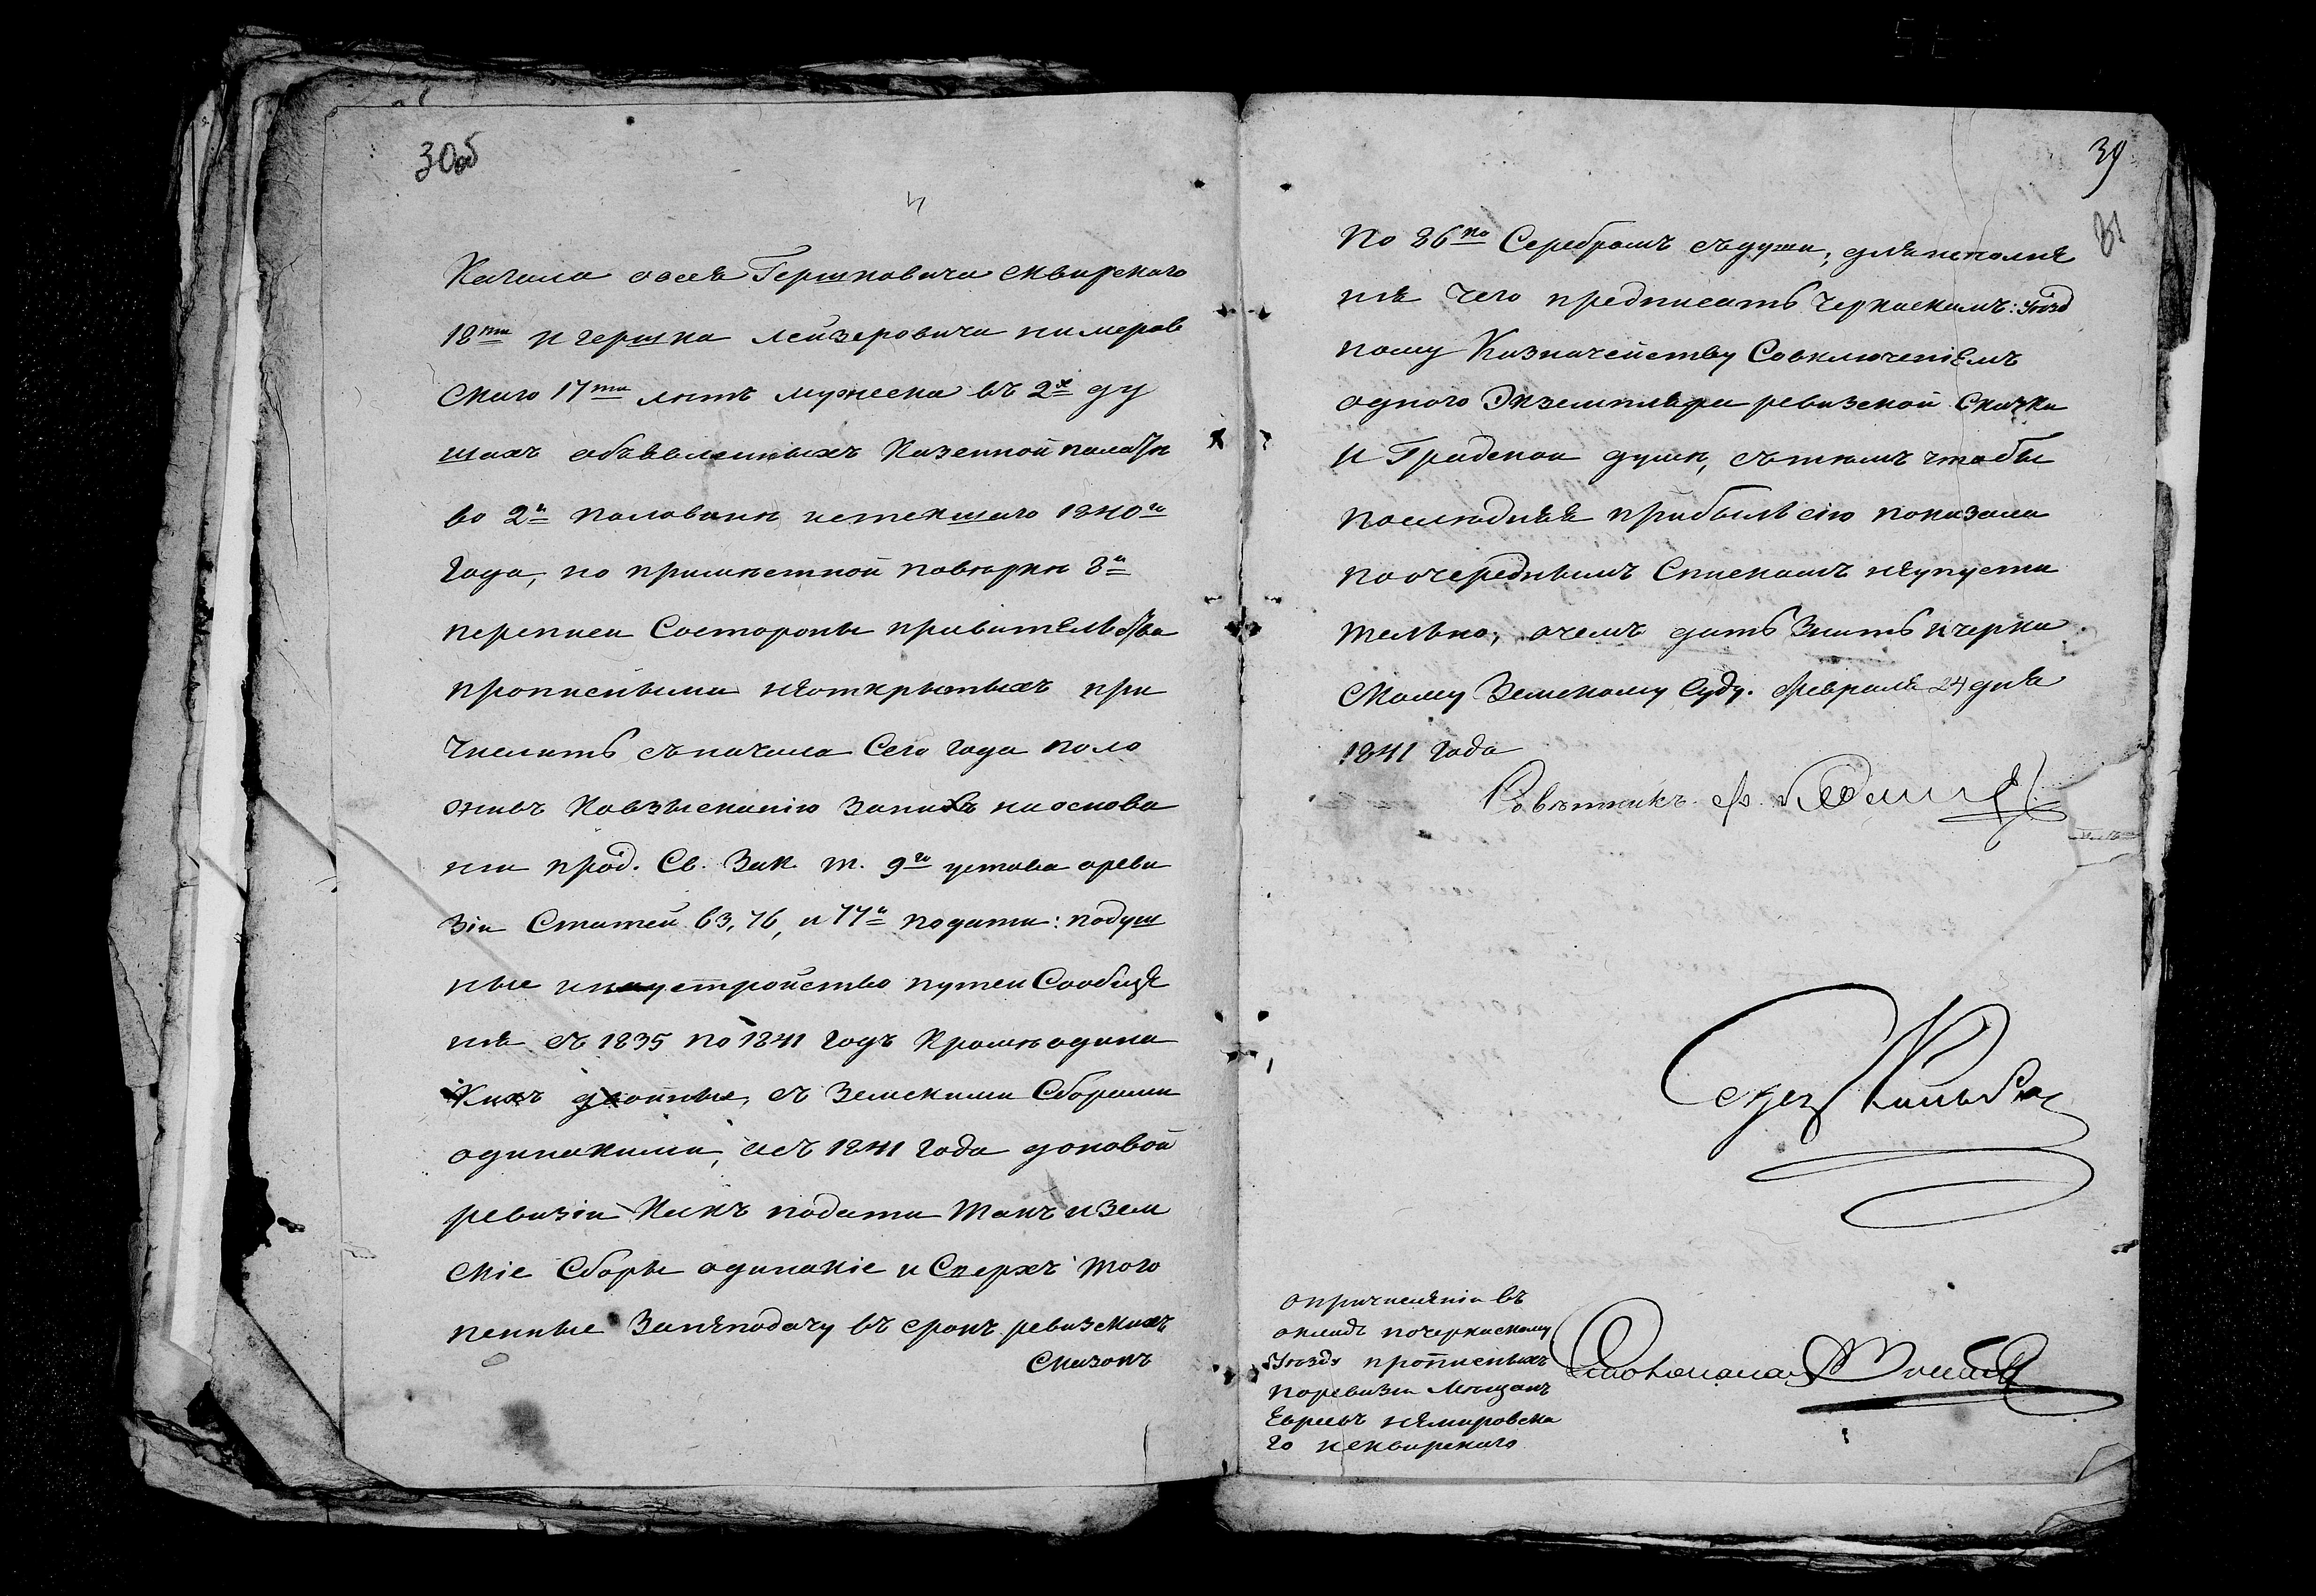 30об
Кагала овсея Гершковича сквирскаго
18ти и гершка лейзеровича нимеров
скаго 17ти летъ мужеска въ 2х ду
шахъ объявленныхъ Казенной палатѣ
во 2й половинѣ истекшаго 1840го
Года, но примѣстной повѣркѣ 8й
переписи Состороны правительства
прописными неоткрытыхъ при
числить съначала Сего года поло
живъ Ковзысканію Запихъ наоснова
ніи прод. Св. Зак. т. 9го устава ореви
зіи Статей 63, 76, и 77й подати: подуш
ные инаустройство путей Сообще
нія съ 1835 по 1841 годъ Кромѣ одина
Кихъ двойные, съ Земскими Сборами
одинакими, исъ 1841 года доновой
ревизіи Какъ подати такъ и зем
скіе Сборы одинакіе и Сверхъ того
пенные Занеподачу въ срокъ ревизскихъ
Сказокъ
39
31
По 86ко Серебромъ съдуши; для исполне
нія чего предписать Черкаскимъ: Уѣзд
ному Казначейству Совключеніемъ
одного Экземпляра ревизской Скаски
и Градской думѣ, сътѣмъ чтобы
последняя прибыль сію показала
поочереднымъ Спискамъ неупусти
тельно, очемъ дать Знать и черка
скому Земскому Суду. февраля 24 дня
1841 года
Совѣтникъ.
опричисленіи въ
окладъ почеркаскому
Уѣзду прописныхъ
поревизіи Мѣщанъ
Евреевъ немировска
го исквирскаго
Столоначальникъ